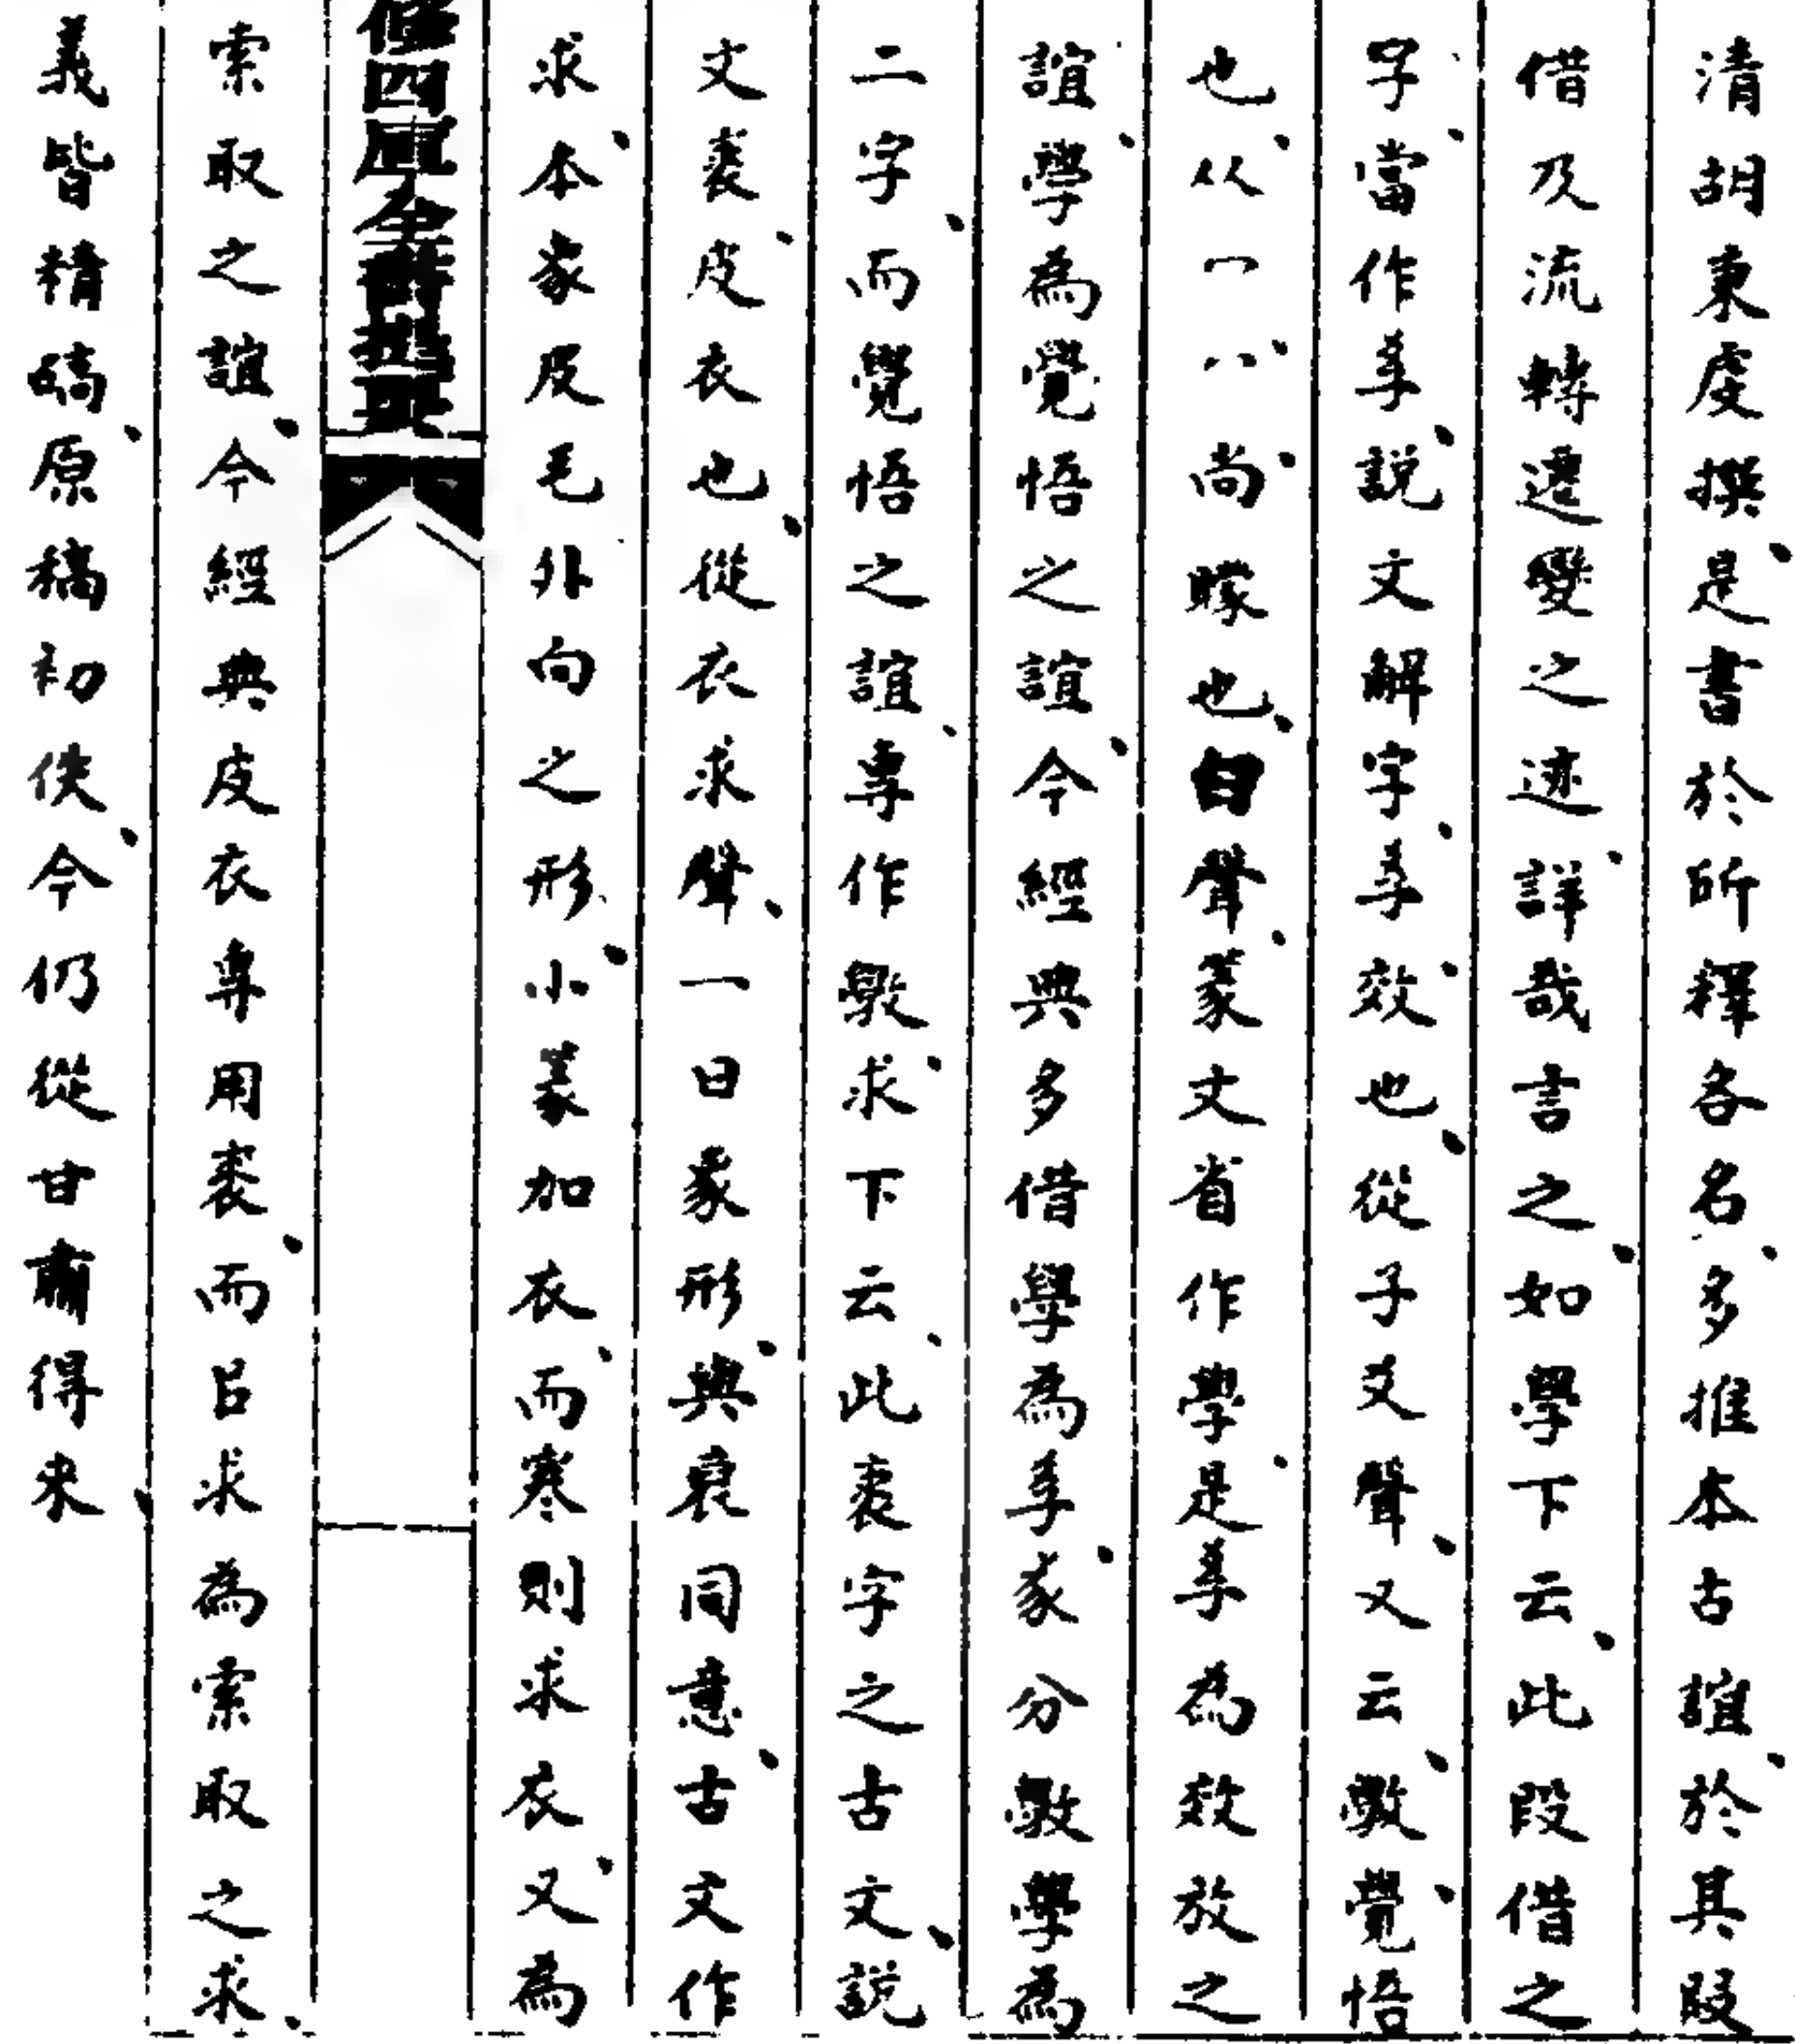 清胡秉虔撰、是書於所釋各名、多推本古誼、於其叚
借及流轉遷變之迹、詳哉言之、如學下云、此叚借之
字、當作𡥉、説文解字、𡥉、效也、從子爻聲、又云、斆、覺悟
也、从、冖、八、尚矇也、𦥑聲、篆文省作學、是𡥉為效放之
誼、學為覺悟之誼、今經典多借學為𡥉、㒸分斆學為
二字、而覺悟之誼、專作斆、求下云、此裘字之古文、説
文裘、皮衣也、從衣求聲、一曰象形、與衰同意、古文作
求、本象皮毛外向之形、小篆加衣、而寒則求衣、又為
修四庫全書提要
索取之誼、今經典皮衣專用裘、而㠯求為索取之求、
義皆精碻、原稿初佚、今仍從甘肅得來、